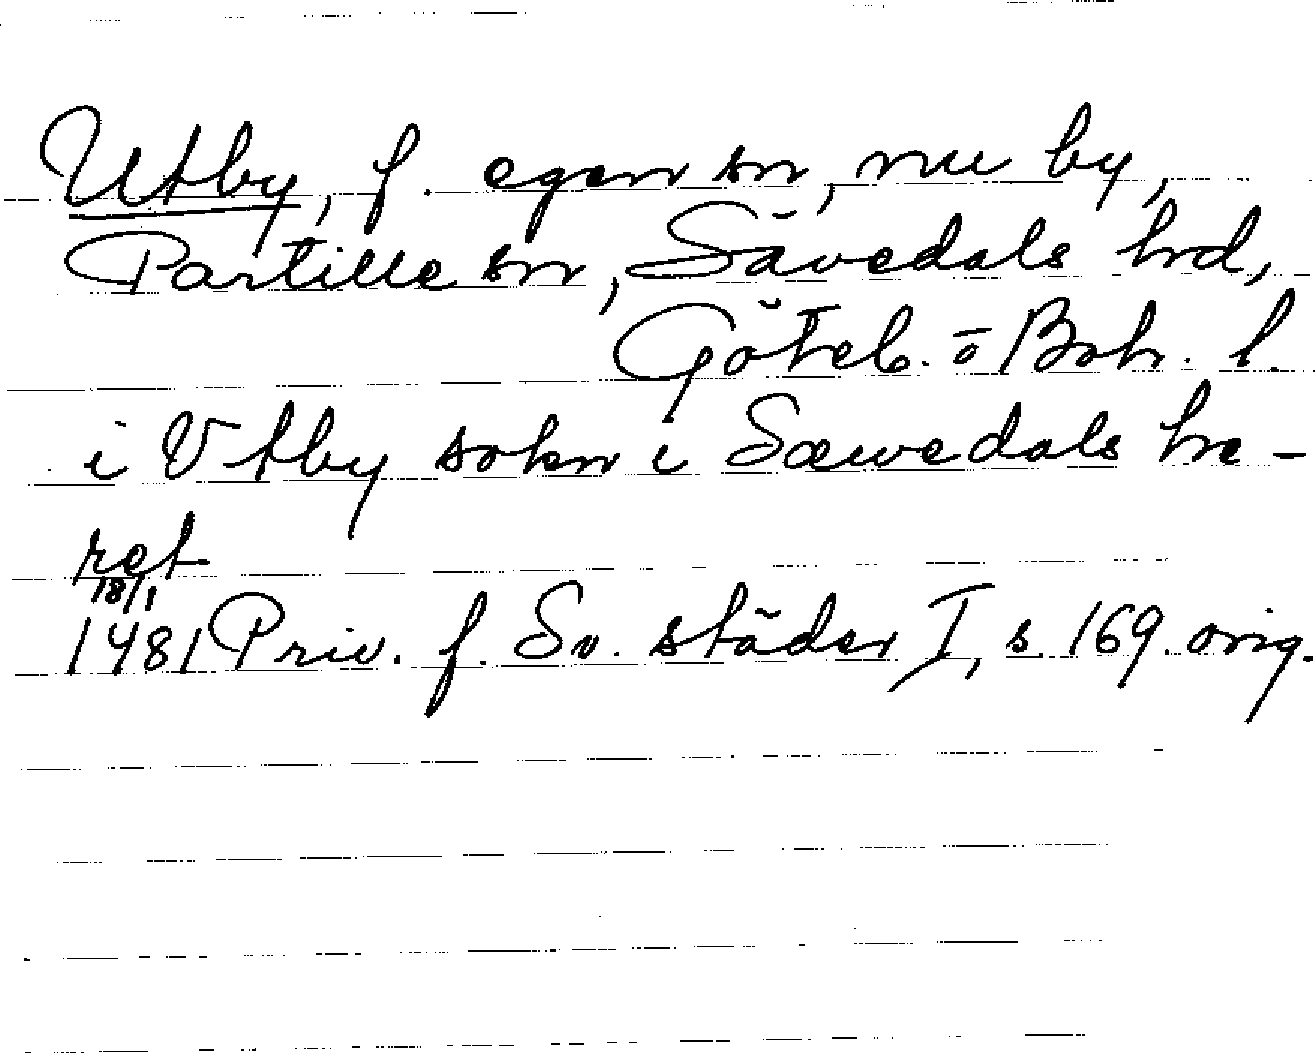 Utby, f. egen sn, nu by,
Partille sn, Sävedals hd,
Göteb. o Boh. l.
i Vtby sokn i Sæwedals hæ-
ret
18/1
1481 Priv. f. Sv. städer I, s. 169. orig.